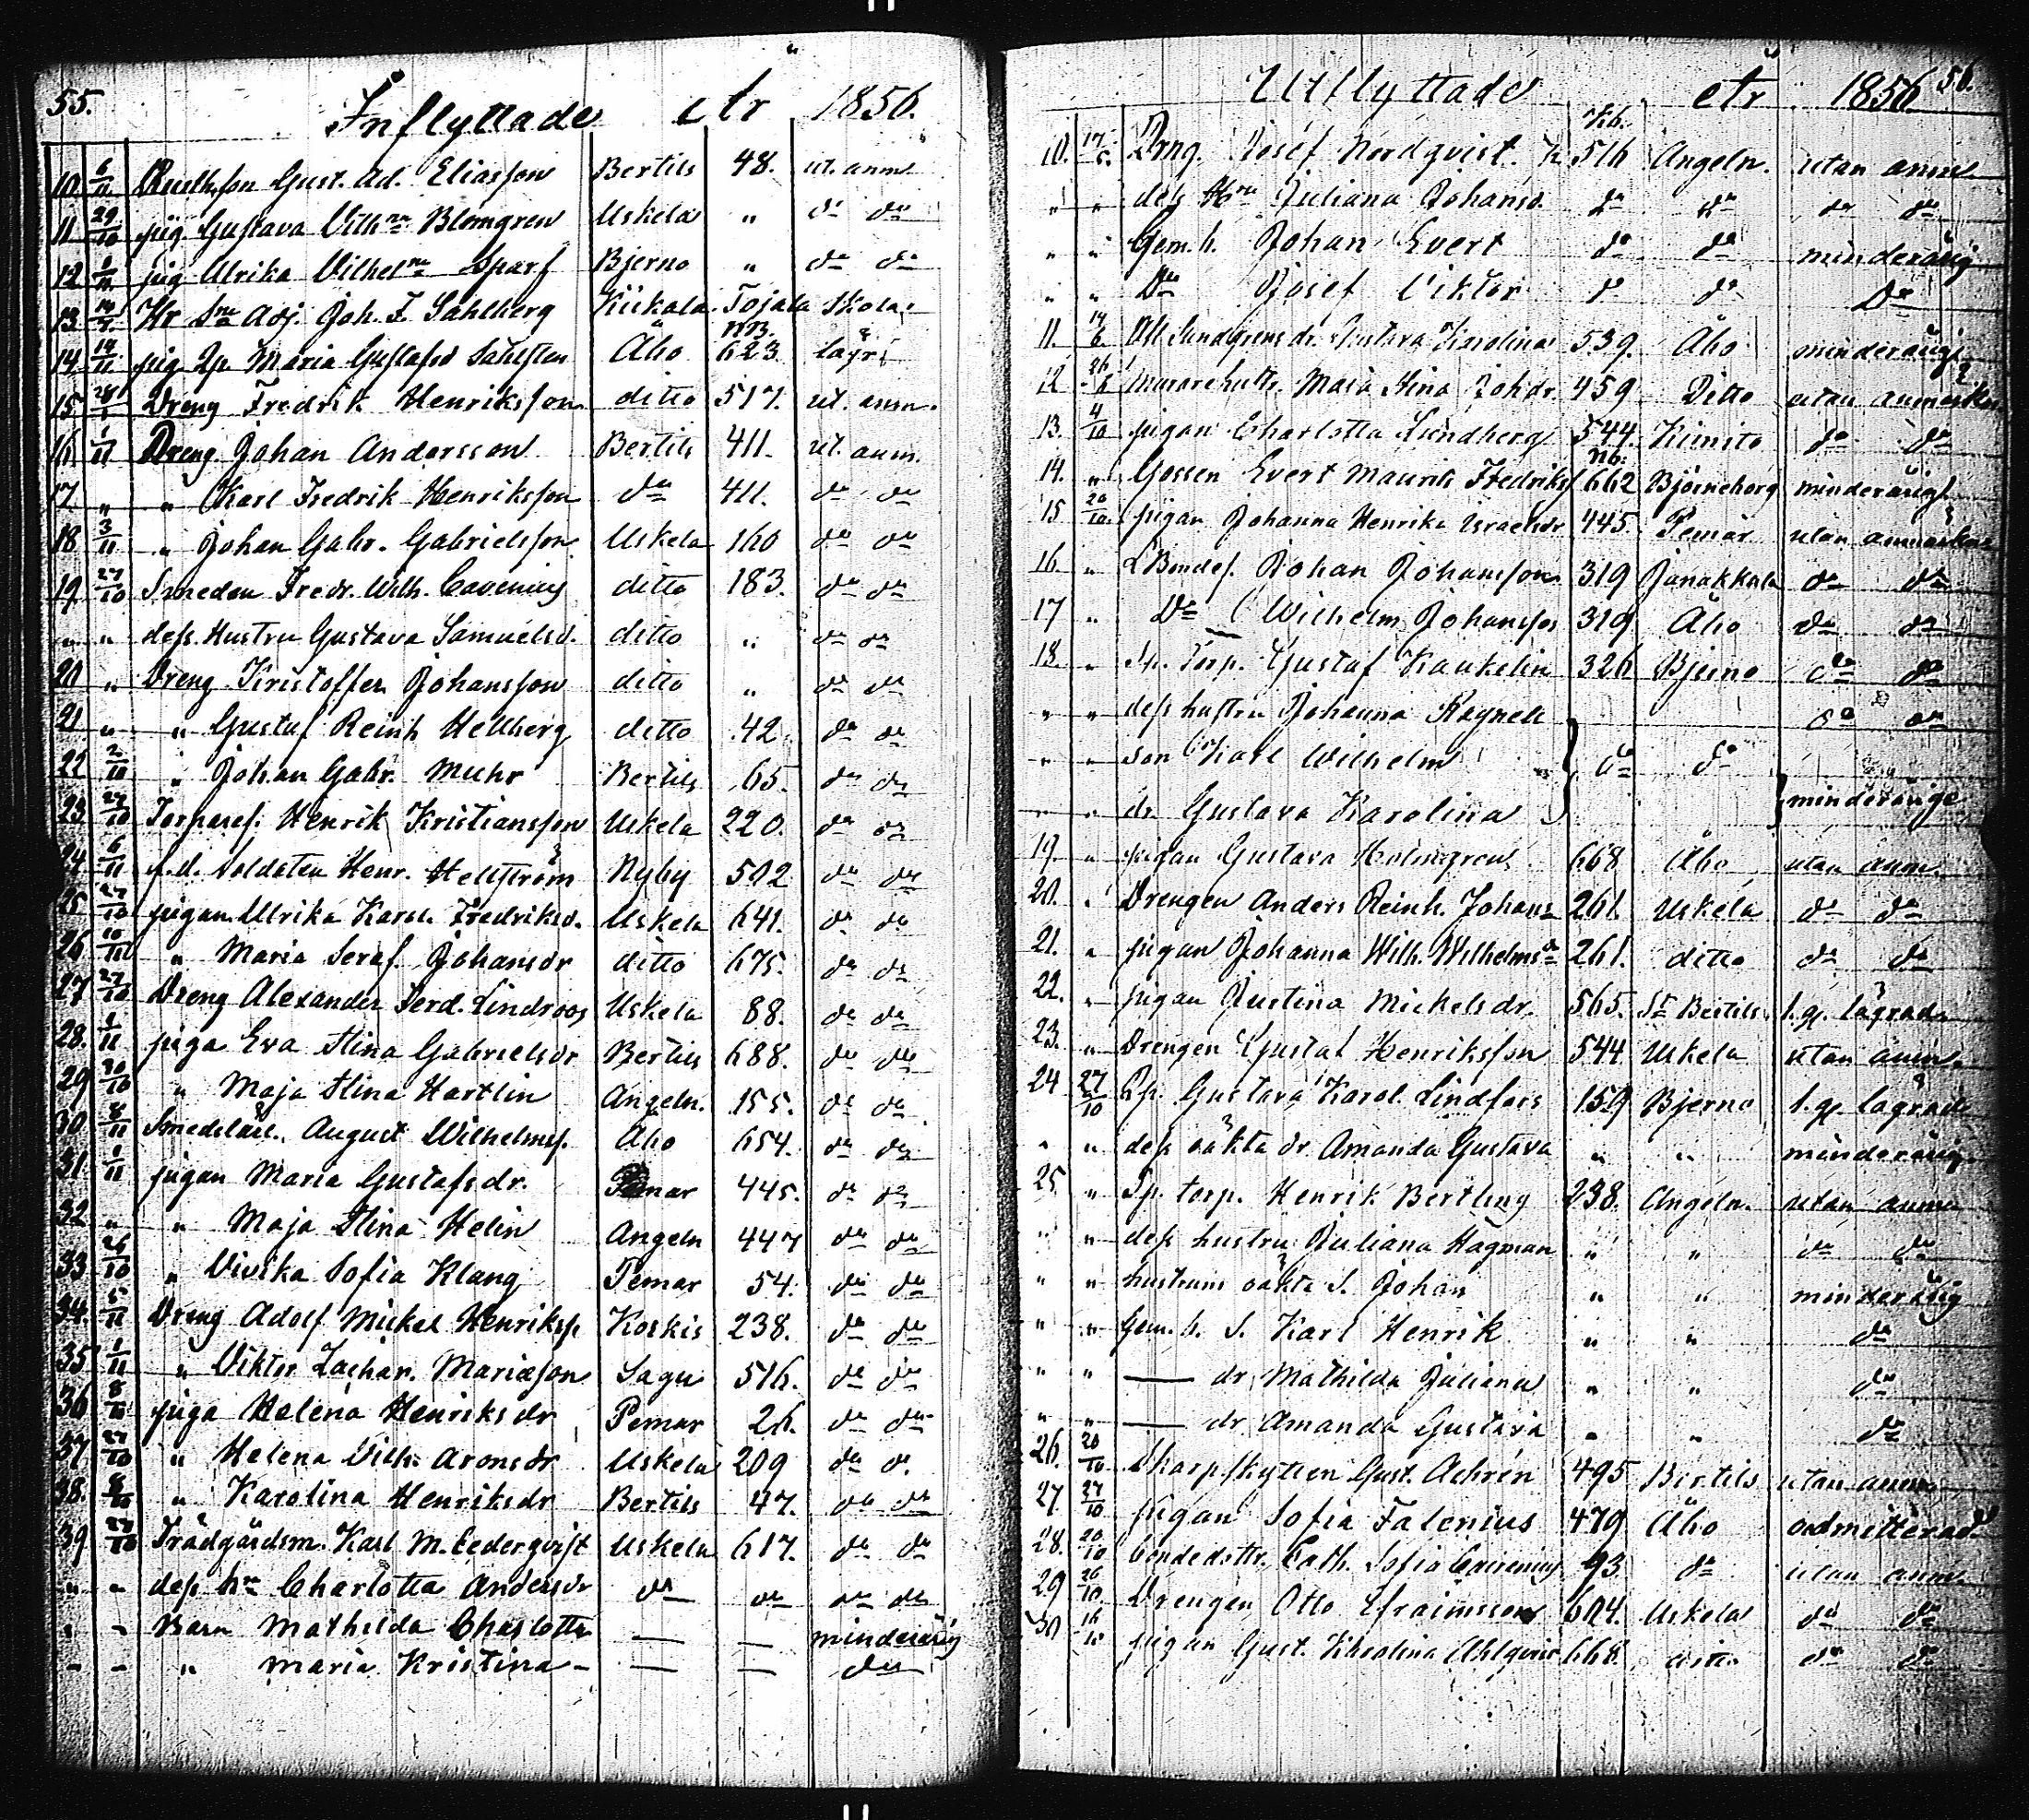 55.
Inflyttade år 1856.
10 6/11 Gust. Ad. Eliasson Bertils 48. ut. anm
11 29/10 pig. Gustava Vilhna Blomgren Uskela " do do
12 1/11 pig Ulrika Vilhelma Sparf Bjerno " do do
13 Adj. Joh. F. Sahlberg Kiikala Tojala Skola
14 14/11 pig Maria Gustafsd Åbo 623
15 Dreng Fredrik Henriksson ditto 517. ut. anm.
16 1/11 Dreng Johan Andersson Bertils 411. ut. anm.
17 " " Karl Fredrik Henriksson do 411. do do
18 3/11 " Johan Gabr. Gabrielsson Uskela 160 do do
19 27/10 Smeden Fredr. Wilh. Cavenius ditto 183. do do
" " dess Hustru Gustava Samuelsd. ditto " do do
20 " Dreng Kristoffer Johansson ditto " do do
21 " " Gustaf Reinh Hellberg ditto 42. do do
22 2/10 " Johan Gabr. Muhr Bertils 65. do do
23 27/10 Torparef. Henrik Kristiansson Uskela 220. do do
24 6/11 a.d. Soldaten Henr. Hellström Nyby 502 do do
25 27/10 pigan Ulrika Karol. Fredriksd. Uskela 641. do do
26 10/11 " Maria Seraf. Johansdr ditto 675. do do
27 27/10 Dreng Alexander Ferd. Lindroos Uskela 88. do do
28. 1/11 piga Eva Stina Gabrielsdr Bertils 688. do do
29 30/10 " Maja Stina Hartlin Angeln. 155. do do
30 8/11 August Wilhelmsf. Åbo 654. do do
31 1/11 pigan Maria Gustafsdr. Pemar 445. do do
32 " " Maja Stina Helin Angeln 447 do do
33 26/10 " Vivika Sofia Klang Pemar 54. do do
34. 5/11 Dreng Adolf Mickel Henrikss. Koskis 238. do do
35 1/11 " Viktor Zachar. Mariæson Sagu 516. do do
36 8/11 piga Helena Henriksdr Pemar 26. do do
37 27/10 " Helena Vilh. Aronsdr Uskela 209 do do
38. 8/10 " Karolina Henriksdr Bertils 47. do do
39 27/10 Trädgårdsm. Karl M. Cederqvist Uskela 617. do do
" - dess hu Charlotta Andersdr do do do do
" - Barn Mathilda Charlotta — — minderårig
- - " Maria Kristina - — — do
56.
Utflyttade år 1856
Kb.
10. 17/5 Dreng. Josef Nordqvist. 516 Angeln. utan anm
" " dess Hru Juliana Johansd. do do do do
" " Gem. b. Johan Evert do do minderårig
" " Do Josef Viktor do do Do
11. 14/6 Sundgrens dr. Gustava Karolina 539. Åbo minderårig
12 26/6 Maja Stina Johdr. 459 Ditto utan
13. 4/10 pigan Charlotta Lundberg 544. Kimito do do
14. " Gossen Evert Maurits Fredriks 662 Björneborg minderårig
15 20/10 pigan Johanna Henrika Israelsdr 445. Pemar utan
16. " Johan Johansson 319 Janakkala do do
17 " Do Wilhelm Johansson 319 Åbo do do
18. " Sp. Torp. Gustaf Kaukelin 326 Bjerno do do
" " dess hustru Johanna Ragnell do do
" " son Karl Wilhelm do do
" " dr. Gustava Karolina minderårige
19 " pigan Gustava Holmgren 668 Åbo utan anm.
20. " Drengen Anders Reinh. Johans 261. Uskela do do
21. " pigan Johanna Wilh. Wilhelmsd 261. ditto do do
22. " pigan Justina Mickelsdr. 565. St Bertils
23. " Drengen Gustaf Henriksson 544. Uskela utan anm.
24 27/10 Gustava Karol. Lindfors 159 Bjerno
" " dess oäkta dr Amanda Gustava " " minderårig
25. " Sp. torp. Henrik Bertling 238. Angeln. utan anm
" " dess hustru Juliana Hagman " " do do
" " hustruns oäkta S. Johan " " minderårig
" " Gem. b. S. Karl Henrik " " do
" " — dr Mathilda Juliana " " do
" " — dr Amanda Gustava " " do
26. 20/10 Skarpskytten Gust. Achrén 495 Bertils utan anm
27 27/10 pigan Sofia Falenius 479 Åbo admitterad
28. 20/10 Cath. Sofia 93. do utan anm.
29 26/10 Drengen Otto Efraimsson 604. Uskela do do
30 16/10 pigan Gust. Karolina Ahlqvist 668. ditto do do